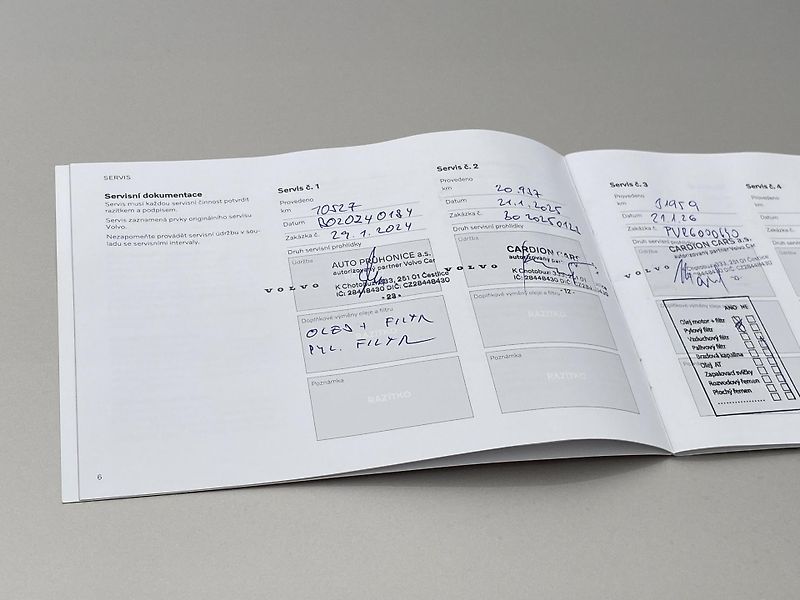 SERVIS
Servisní dokumentace
Servis musí každou servisní činnost potvrdit
razítkem a podpisem.
Servis zaznamená prvky originálního servisu
Volvo.
Nezapomeňte provádět servisní údržbu v sou-
ladu se servisními intervaly.
6
Servis č. 1
Provedeno
km 10527
Datum BO20240184
Zakázka č. 29.1.2024
Druh servisní prohlídky
Údržba
AUTO PRŮHONICE a.s.
autorizovaný partner Volvo Car
K Chotobuzi 333, 251 01 Čestlice
IČ: 28448430 DIČ: CZ28448430
- 23 -
VOLVO
Doplňkové výměny oleje a filtru
RAZÍTKO
OLEJ + FILTR
PYL. FILTR
Poznámka
RAZÍTKO
Servis č. 2
Provedeno
km 20.937
Datum 21.1.2025
Zakázka č.
Druh servisní prohlídky
Údržba
CARDION CARS
autorizovaný
K Chotobuzi 333, 251 01
IČ: 28448430 DIČ: CZ284484
- 12 -
VOLVO
Doplňkové výměny oleje a filtru
RAZÍTKO
Poznámka
RAZÍTKO
Servis č. 3
Provedeno
km 31959
Datum 21.1.26
Zakázka č.
Druh servisní prohlídky
Údržba
CARDION CARS a.s.
autorizovaný partner Volvo Car
251 01 Čestlice
CZ28448430
VOLVO
Doplňkové výměny oleje a filtru
ANO NE
Olej motor + filtr
Pylový filtr
Vzduchový filtr
Palivový filtr
Brzdová kapalina
Olej AT
Zapalovací svíčky
Rozvodový řemen
Plochý řemen
Servis č. 4
Provedeno
km
Datum
Zakázka č.
Druh servisní
Údržba